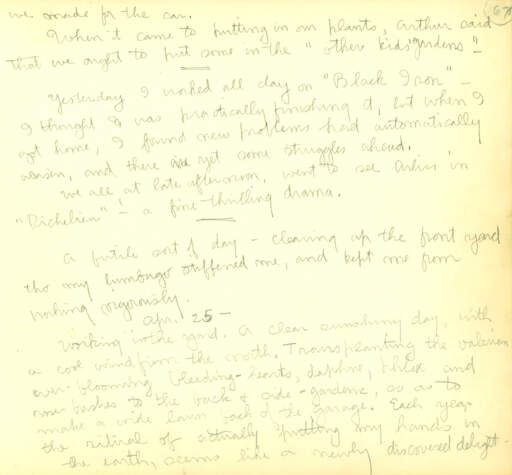 we made for the car.
When it came to putting in our plants, Arthur said
that we ought to put some in the "other kids' gardens"!
Yesterday I worked all day on "Black Iron" –
I thought I was practically finishing it, but when I
got home, I found new problems had automatically
arisen, and there are yet some struggles ahead.
We all at late afternoon, went to see Arliss in
"Richelieu" – a fine thrilling drama.
A futile sort of day – cleaning up the front yard
tho my lumbago stiffened me, and kept me from
working vigorously.
Apr. 25 –
Working in the yard. A clear sunshiny day, with
a cool wind from the north. Transplanting the valerian
over-blooming bleeding-hearts, daphne, phlox and
rose-bushes to the back & side-gardens, so as to
make a wide lawn back of the garage. Each year
the ritual of actually putting my hands in
the earth, seems like a newly discovered delight.